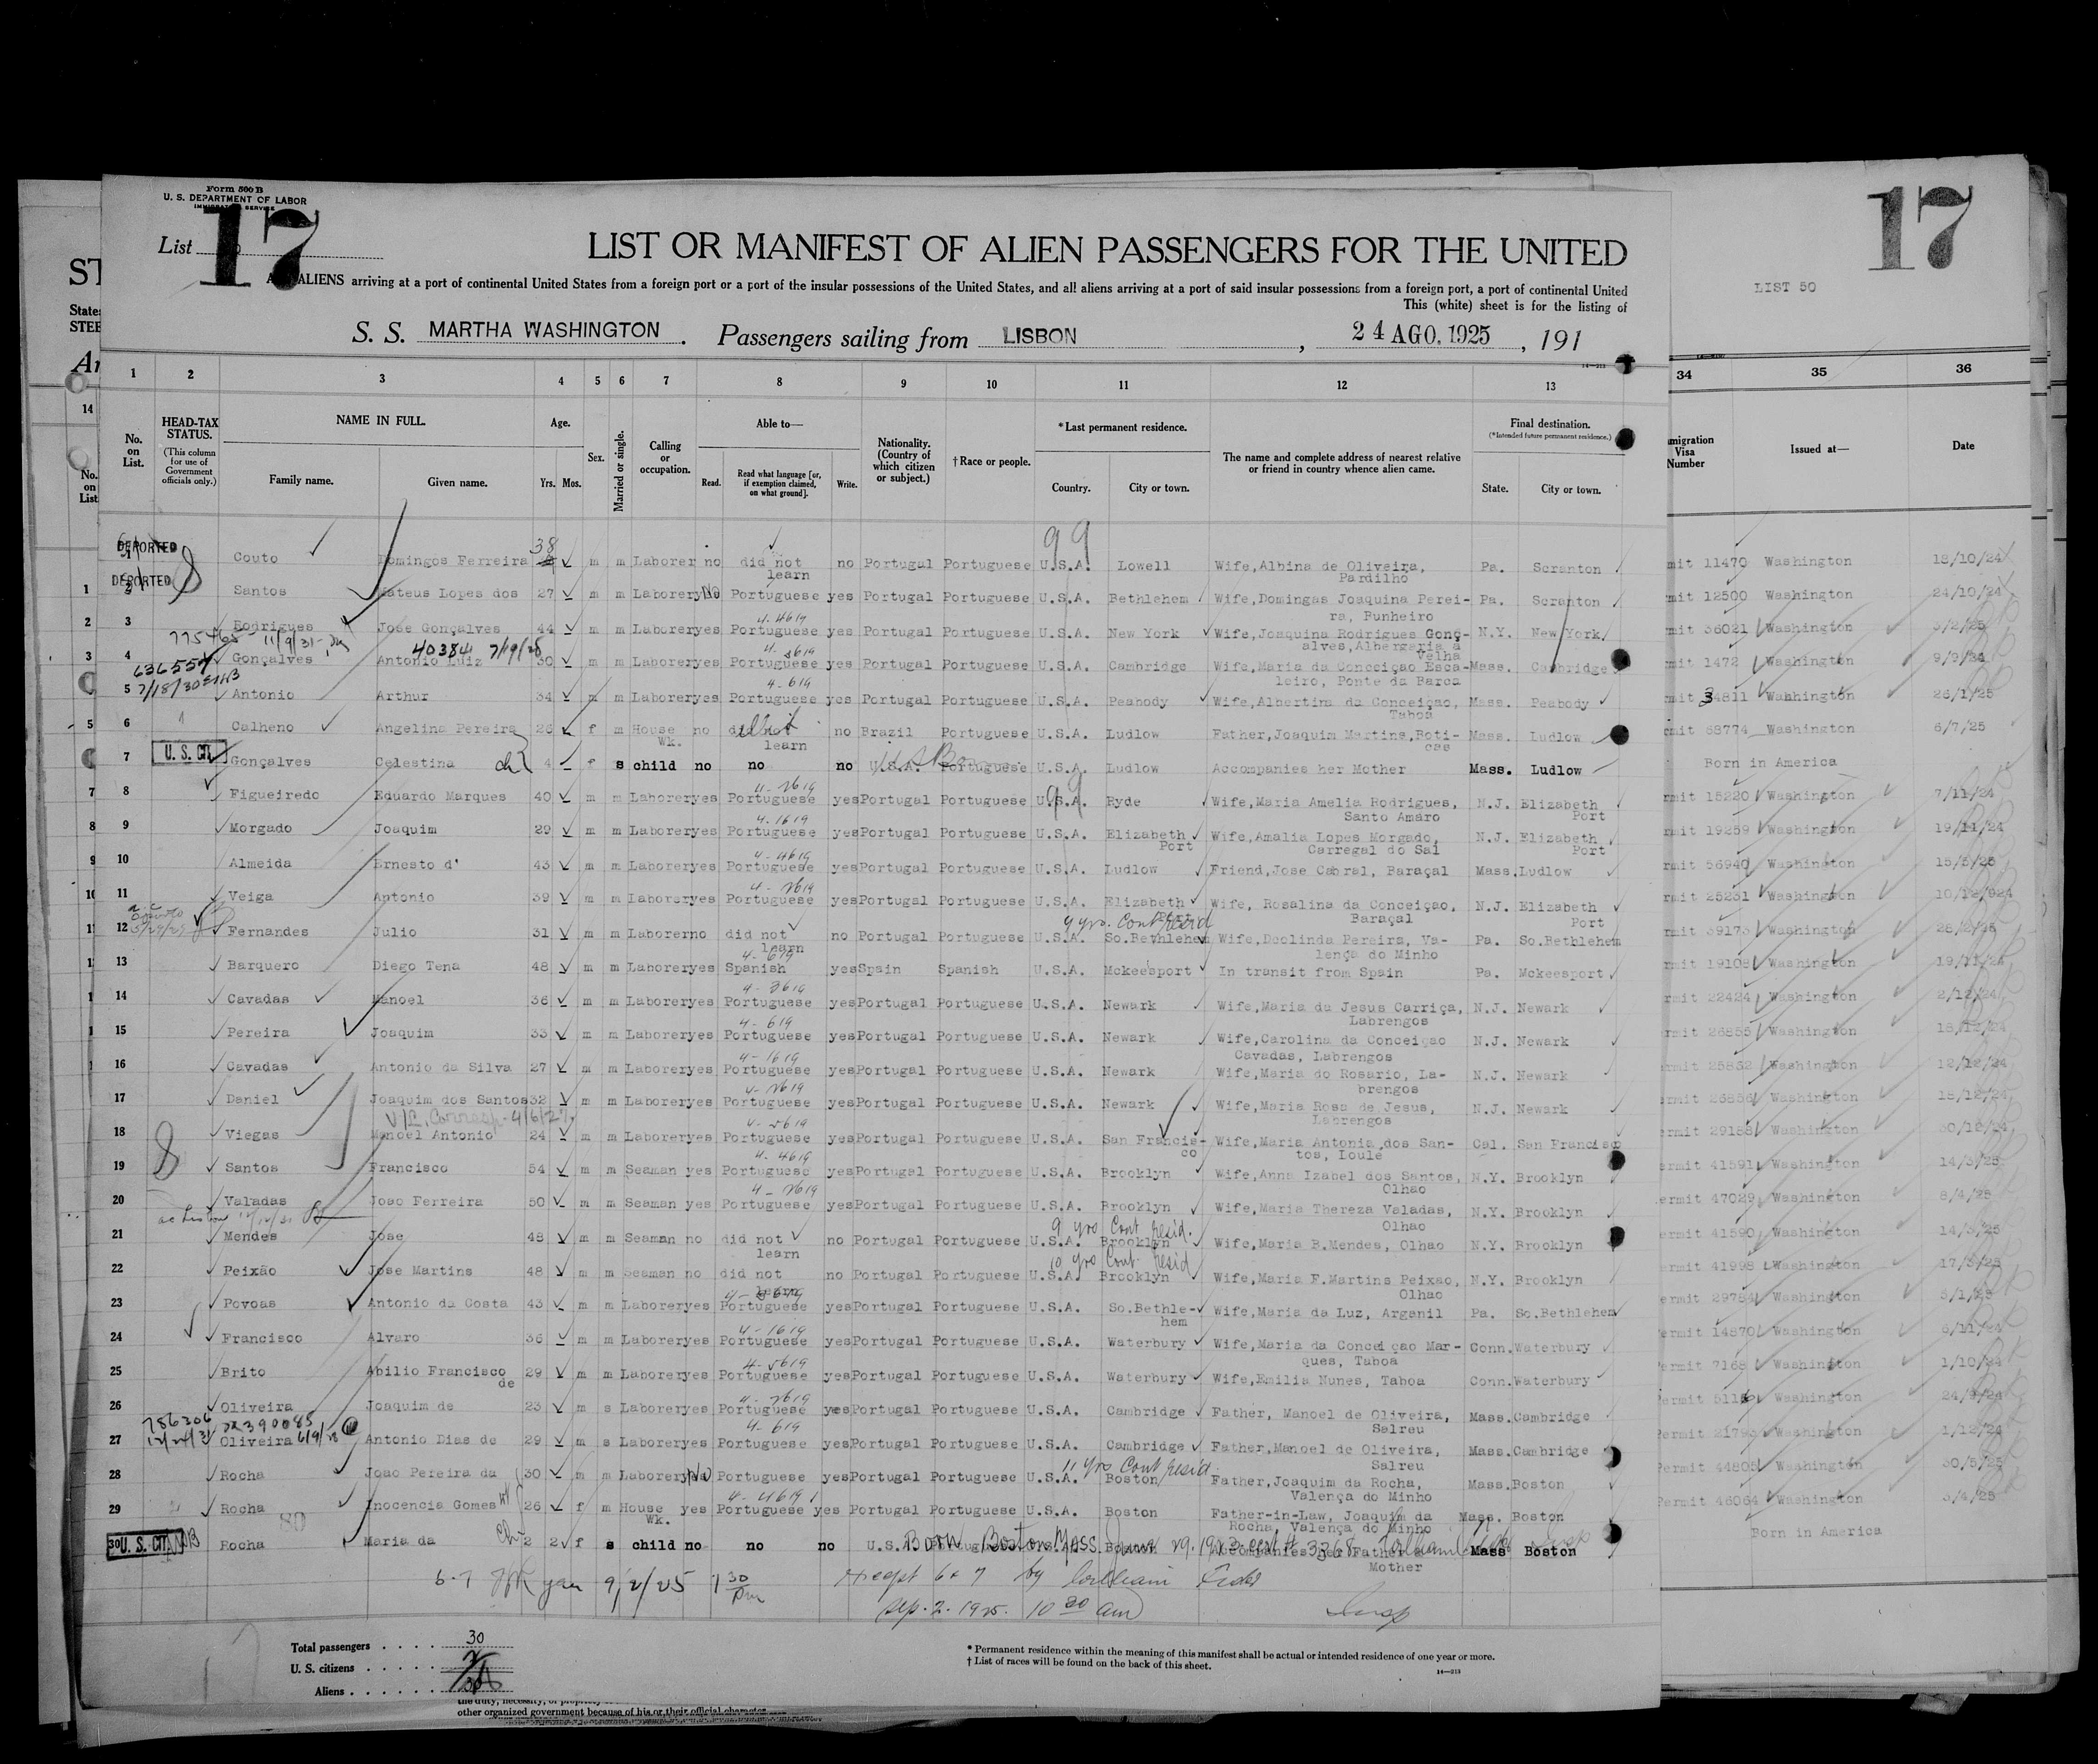 Form 500 B
U. S. DEPARTMENT OF LABOR
IMMIGRATION SERVICE
List
17
17
LIST 50
LIST OR MANIFEST OF ALIEN PASSENGERS FOR THE UNITED
ALIENS arriving at a port of continental United States from a foreign port or a port of the insular possessions of the United States, and all aliens arriving at a port of said insular possessions from a foreign port, a port of continental United
This (white) sheet is for the listing of
S. S. MARTHA WASHINGTON. Passengers sailing from LISBON, 24 AGO. 1925, 191
1 2 3 4 5 6 7 8 9 10 11 12 13 34 35 36
No. on List.
HEAD-TAX STATUS.
(This column for use of Government officials only.)
NAME IN FULL.
Family name. Given name.
Age.
Yrs. Mos.
Sex.
Married or single.
Calling or occupation.
Able to—
Read. Read what language [or, if exemption claimed, on what ground]. Write.
Nationality. (Country of which citizen or subject.)
† Race or people.
* Last permanent residence.
Country. City or town.
The name and complete address of nearest relative or friend in country whence alien came.
Final destination.
(*Intended future permanent residence.)
State. City or town.
Visa Number Issued at— Date
DEPORTED Couto Domingos Ferreira 38 m m Laborer no did not learn no Portugal Portuguese U.S.A. Lowell Wife, Albina de Oliveira, Pardilho Pa. Scranton 11470 Washington 18/10/24
DEPORTED 2 Santos Mateus Lopes dos 27 m m Laborer No Portuguese yes Portugal Portuguese U.S.A. Bethlehem Wife, Domingas Joaquina Perei-ra, Bunheiro Pa. Scranton 12500 Washington 24/10/24
3 Rodrigues Jose Gonçalves 44 m m Laborer yes Portuguese yes Portugal Portuguese U.S.A. New York Wife, Joaquina Rodrigues Gonç-alves, Albergaria a Velha N.Y. New York 36021 Washington 3/2/25
775465 11/9/31
4 Gonçalves Antonio Luiz 30 m m Laborer yes Portuguese yes Portugal Portuguese U.S.A. Cambridge Wife, Maria da Conceiçao Esca-leiro, Ponte da Barca Mass. Cambridge 1472 Washington 9/9/24
636554 40384 7/19/28
7/18/30
5 Antonio Arthur 34 m m Laborer yes Portuguese yes Portugal Portuguese U.S.A. Peabody Wife, Albertina da Conceiçao, Taboa Mass. Peabody 34811 Washington 26/1/25
6 Calheno Angelina Pereira 26 f m House Wk. no did not learn no Brazil Portuguese U.S.A. Ludlow Father, Joaquim Martins, Boti-cas Mass. Ludlow 68774 Washington 6/7/25
7 U.S. CIT. Gonçalves Celestina ch 4 f s child no no no U.S.A. Portuguese U.S.A. Ludlow Accompanies her Mother Mass. Ludlow Born in America
8 Figueiredo Eduardo Marques 40 m m Laborer yes Portuguese yes Portugal Portuguese U.S.A. Ryde Wife, Maria Amelia Rodrigues, Santo Amaro N.J. Elizabeth Port 15220 Washington 7/11/24
9 Morgado Joaquim 29 m m Laborer yes Portuguese yes Portugal Portuguese U.S.A. Elizabeth Port Wife, Amalia Lopes Morgado, Carregal do Sal N.J. Elizabeth Port 19259 Washington 19/11/24
10 Almeida Ernesto d' 43 m m Laborer yes Portuguese yes Portugal Portuguese U.S.A. Ludlow Friend, Jose Cabral, Baraçal Mass. Ludlow 56940 Washington 15/5/25
11 Veiga Antonio 39 m m Laborer yes Portuguese yes Portugal Portuguese U.S.A. Elizabeth Port Wife, Rosalina da Conceiçao, Baraçal N.J. Elizabeth Port 25231 Washington 10/12/924
9 yrs. Cont. Resid
12 Fernandes Julio 31 m m Laborer no did not learn no Portugal Portuguese U.S.A. So.Bethlehem Wife, Deolinda Pereira, Va-lença do Minho Pa. So.Bethlehem 39173 Washington 28/2/25
13 Barquero Diego Tena 48 m m Laborer yes Spanish yes Spain Spanish U.S.A. Mckeesport In transit from Spain Pa. Mckeesport 19108 Washington 19/11/24
14 Cavadas Manoel 36 m m Laborer yes Portuguese yes Portugal Portuguese U.S.A. Newark Wife, Maria da Jesus Carriça, Labrengos N.J. Newark 22424 Washington 2/12/24
15 Pereira Joaquim 33 m m Laborer yes Portuguese yes Portugal Portuguese U.S.A. Newark Wife, Carolina da Conceiçao Cavadas, Labrengos N.J. Newark 26855 Washington 18/12/24
16 Cavadas Antonio da Silva 27 m m Laborer yes Portuguese yes Portugal Portuguese U.S.A. Newark Wife, Maria do Rosario, La-brengos N.J. Newark 25832 Washington 12/12/24
17 Daniel Joaquim dos Santos 32 m m Laborer yes Portuguese yes Portugal Portuguese U.S.A. Newark Wife, Maria Rosa de Jesus, Labrengos N.J. Newark 26856 Washington 18/12/24
V/L. Corresp. 4/6/27
18 Viegas Manoel Antonio 24 m m Laborer yes Portuguese yes Portugal Portuguese U.S.A. San Francis-co Wife, Maria Antonia dos San-tos, Loule Cal. San Francisco 29185 Washington 30/12/24
19 Santos Francisco 54 m m Seaman yes Portuguese yes Portugal Portuguese U.S.A. Brooklyn Wife, Anna Izabel dos Santos, Olhao N.Y. Brooklyn 41591 Washington 14/3/25
20 Valadas Joao Ferreira 50 m m Seaman yes Portuguese yes Portugal Portuguese U.S.A. Brooklyn Wife, Maria Thereza Valadas, Olhao N.Y. Brooklyn 47029 Washington 8/4/25
9 yrs Cont. Resid.
21 Mendes Jose 48 m m Seaman no did not learn no Portugal Portuguese U.S.A. Brooklyn Wife, Maria B.Mendes, Olhao N.Y. Brooklyn 41590 Washington 14/3/25
10 yrs Cont. Resid
22 Peixão Jose Martins 48 m m Seaman no did not learn no Portugal Portuguese U.S.A. Brooklyn Wife, Maria F.Martins Peixao, Olhao N.Y. Brooklyn 41998 Washington 17/3/25
23 Povoas Antonio da Costa 43 m m Laborer yes Portuguese yes Portugal Portuguese U.S.A. So.Bethle-hem Wife, Maria da Luz, Arganil Pa. So.Bethlehem 29784 Washington 3/1/25
24 Francisco Alvaro 36 m m Laborer yes Portuguese yes Portugal Portuguese U.S.A. Waterbury Wife, Maria da Conceiçao Mar-ques, Taboa Conn. Waterbury 14870 Washington 6/11/24
25 Brito Abilio Francisco de 29 m m Laborer yes Portuguese yes Portugal Portuguese U.S.A. Waterbury Wife, Emilia Nunes, Taboa Conn. Waterbury 7168 Washington 1/10/24
26 Oliveira Joaquim de 23 m s Laborer yes Portuguese yes Portugal Portuguese U.S.A. Cambridge Father, Manoel de Oliveira, Salreu Mass. Cambridge Washington
786306 390085
27 Oliveira Antonio Dias de 29 m s Laborer yes Portuguese yes Portugal Portuguese U.S.A. Cambridge Father, Manoel de Oliveira, Salreu Mass. Cambridge 21793 Washington 1/12/24
11 yrs Cont. Resid.
28 Rocha Joao Pereira da 30 m m Laborer No Portuguese yes Portugal Portuguese U.S.A. Boston Father, Joaquim da Rocha, Valença do Minho Mass. Boston 44805 Washington 30/3/25
29 Rocha Inocencia Gomes 26 f m House Wk. yes Portuguese yes Portugal Portuguese U.S.A. Boston Father-in-Law, Joaquim da Rocha, Valença do Minho Mass. Boston 46064 Washington 3/4/25
30 U.S. CIT. Rocha Maria da Ch 2 2 f s child no no no U.S.A. Born Boston Mass. Accompanies her Father & Mother Mass Boston Born in America
9/2/25 1 30 pm
except 6 & 7 by William
Sep. 2. 1925. 10 30 am Insp
Total passengers . . . . 30
U. S. citizens . . . . . 2
Aliens . . . . . .
* Permanent residence within the meaning of this manifest shall be actual or intended residence of one year or more.
† List of races will be found on the back of this sheet.
14—213
other organized government because of his or their official character